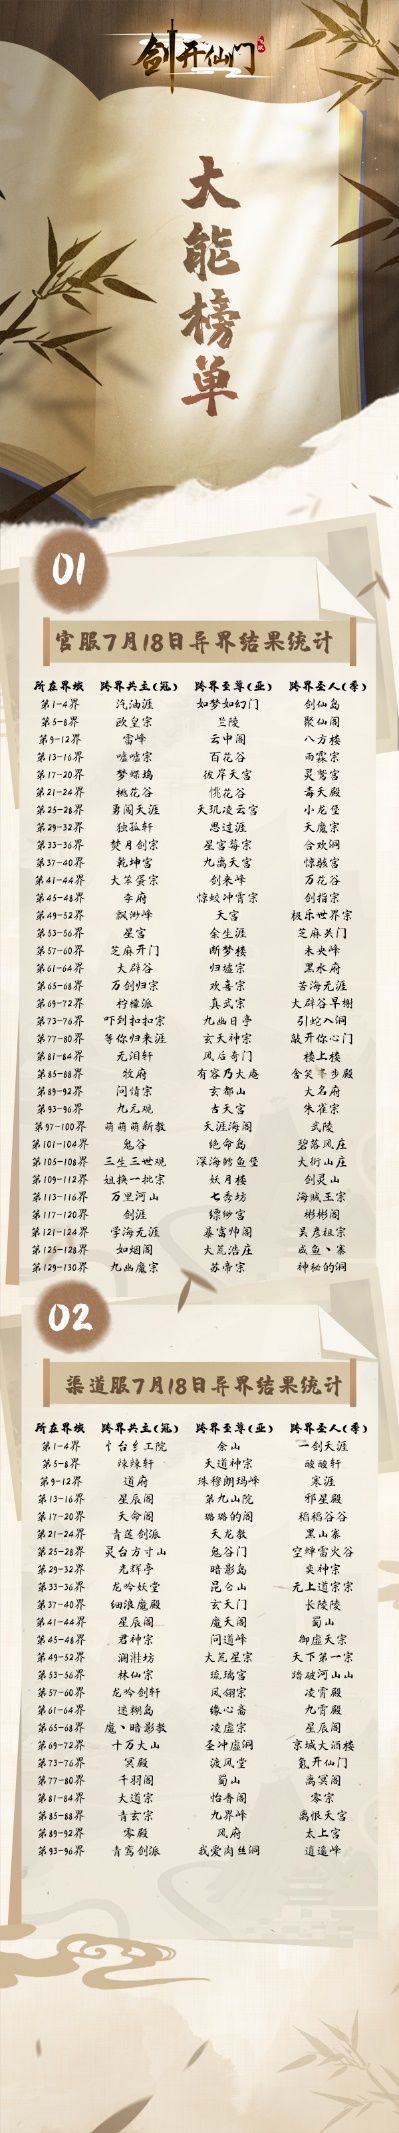 剑开仙门
大能榜单
01
官服7月18日异界结果统计
所在界域 跨界共主(冠) 跨界至尊(亚) 跨界圣人(季)
第1-4界 汽油涯 如梦如幻门 剑仙岛
第5-8界 欧皇宗 兰陵 聚仙阁
第9-12界 雷峰 云中阁 八方楼
第13-16界 嘘嘘宗 百花谷 雨霖宗
第17-20界 梦蝶坞 彼岸天宫 灵鸳宫
第21-24界 桃花谷 恍花阁 毒天殿
第25-28界 勇闯天涯 天玑凌云宫 小龙堡
第29-32界 独孤轩 思过涯 天魔宗
第33-36界 焚月剑宗 星宫莓宗 合欢洞
第37-40界 乾坤宫 九离天宫 惊骇宫
第41-44界 大笨蛋宗 剑来峰 万花谷
第45-48界 李府 惊蛟冲霄宗 剑指宗
第49-52界 飘渺峰 天宫 极乐世界宗
第53-56界 星宫 余生涯 芝麻关门
第57-60界 芝麻开门 断梦楼 未央峰
第61-64界 大辟谷 归墟宗 黑水府
第65-68界 万剑归宗 欢喜宗 苦海无涯
第69-72界 柠檬派 真武宗 大辟谷早榭
第73-76界 吓到扣扣宗 九幽日亭 引蛇入洞
第77-80界 等你归来涯 玄天神宗 敲开你心门
第81-84界 无泪轩 风后奇门 楼上楼
第85-88界 牧府 有容乃大庵 含笑半步殿
第89-92界 问情宗 玄都山 大名府
第93-96界 九元观 古天宫 朱雀宗
第97-100界 萌萌萌新教 天涯海阁 武陵
第101-104界 鬼谷 绝命岛 碧落风庄
第105-108界 三生三世观 深海鳕鱼堡 大衍山庄
第109-112界 姐换一批宗 妖月楼 剑灵山
第113-116界 万里河山 七秀坊 海贼王宗
第117-120界 剑涯 缥缈宫 彬彬阁
第121-124界 学海无涯 暴富帅阁 吴彦祖宗
第125-128界 如烟阁 大荒浩庄 咸鱼丶寨
第129-130界 九幽魔宗 苏帝宗 神秘的洞
02
渠道服7月18日异界结果统计
所在界域 跨界共主(冠) 跨界至尊(亚) 跨界圣人(季)
第1-4界 忄台纟工院 余山 一剑天涯
第5-8界 辣辣轩 天道神宗 酸酸轩
第9-12界 道府 珠穆朗玛峰 寒涯
第13-16界 星辰阁 第九山院 邪星殿
第17-20界 天命阁 璐璐的阁 稻稻谷谷
第21-24界 青莲剑派 天龙教 黑山寨
第25-28界 灵台方寸山 鬼谷门 空蝉雷火谷
第29-32界 光辉亭 暗影岛 奕神宗
第33-36界 龙吟妖堂 昆仑山 无上道宗宗
第37-40界 细浪魔殿 玄天门 长陵陵
第41-44界 星辰阁 魔天阁 蜀山
第45-48界 君神宗 问道峰 御虚天宗
第49-52界 澜湖坊 大荒星宗 天下第一宗
第53-56界 林仙宗 琉璃宫 踏破河山山
第57-60界 龙吟剑轩 凤翎宗 凌霄殿
第61-64界 迷糊岛 缘心斋 九霄殿
第65-68界 魔丶暗影教 凌虚宗 星辰阁
第69-72界 十万大山 圣冲虚洞 京城大酒楼
第73-76界 冥殿 渡风堂 氪开仙门
第77-80界 千羽阁 蜀山 离冥阁
第81-84界 大道宗 怡香阁 零宗
第85-88界 青玄宗 九界峰 离恨天宫
第89-92界 零殿 风府 太上宫
第93-96界 青鸾剑派 我爱肉丝洞 逍遥峰